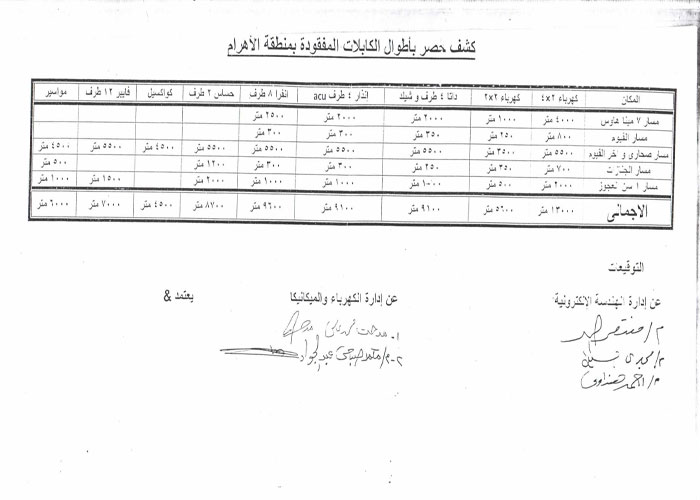 كشف حصر بأطوال الكابلات المفقودة بمنطقة الأهرام
المكان كهرباء ٢×٤ كهرباء ٢×٢ داتا ٤ طرف و شيلد انذار ٤ طرف acu انفرا ٨ طرف حساس ٢ طرف كواكسيل فايبر ١٢ طرف مواسير
مسار ٧ مينا هاوس ٤٠٠٠ متر ١٠٠٠ متر ٢٠٠٠ متر ٢٠٠٠ متر ٢٥٠٠ متر
مسار الفيوم ٨٠٠ متر ٢٥٠ متر ٣٥٠ متر ٣٠٠ متر ٣٠٠ متر
مسار صحارى و اخر الفيوم ٥٥٠٠ متر ٣٥٠٠ متر ٥٥٠٠ متر ٥٥٠٠ متر ٥٥٠٠ متر ٥٥٠٠ متر ٤٥٠٠ متر ٥٥٠٠ متر ٤٥٠٠ متر
مسار ٧٠٠ متر ٣٥٠ متر ٢٥٠ متر ٣٠٠ متر ٣٠٠ متر ١٢٠٠ متر ٥٠٠ متر
مسار ٢٠٠٠ متر ٥٠٠ متر ١٠٠٠ متر ١٠٠٠ متر ١٠٠٠ متر ٢٠٠٠ متر ١٥٠٠ متر ١٠٠٠ متر
الاجمالى ١٣٠٠٠ متر ٥٦٠٠ متر ٩١٠٠ متر ٩١٠٠ متر ٩٦٠٠ متر ٨٧٠٠ متر ٤٥٠٠ متر ٧٠٠٠ متر ٦٠٠٠ متر
التوقيعات
عن إدارة الهندسة الالكترونية عن إدارة الكهرباء والميكانيكا يعتمد &
م/ منتصر
م/ مجدى
م/ احمد هنداوى
١- مدحت
٢- م/ محمد صباحى عبد الجواد